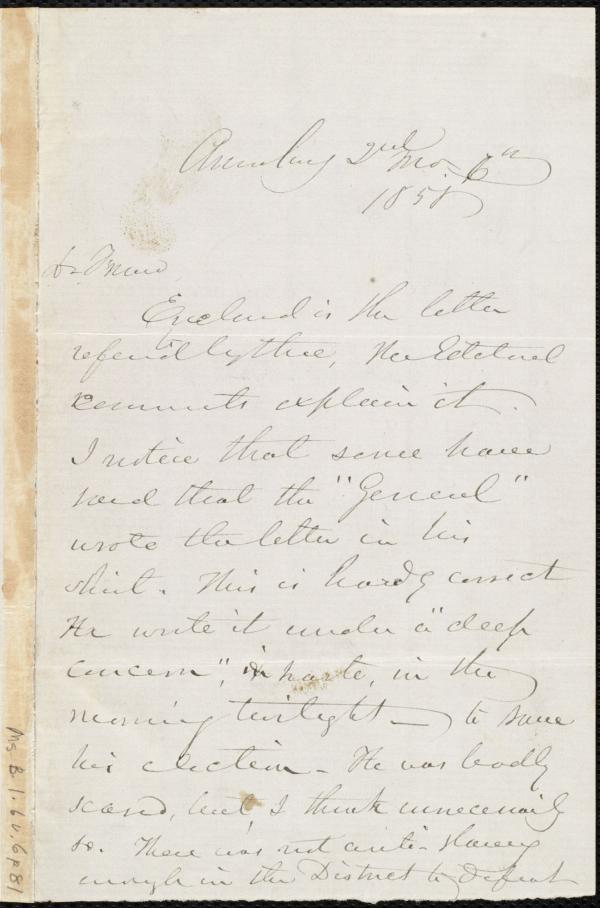 Amesbury 2nd Mo. 6th
1858
Dr Friend
Enclosed is the letter
referred by thee, the Editorial
remarks explain it.
I notice that some have
said that the "General"
wrote the letter in his
shirt. This is hardly correct
He wrote it under a "deep
concern", in haste, in the
morning twilight — to save
his election. He was badly
scared, but, I think unnecessarily
so. There was not anti-slavery
enough in the District to defeat
Ms. B. 1. 6 v. 6 p 81